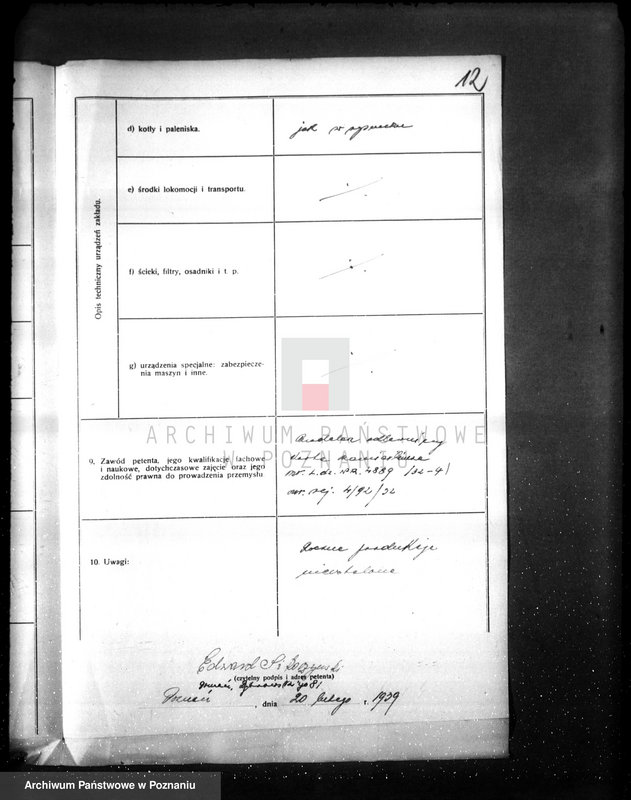 12
Opis techniczny urządzeń zakładu.
d) kotły i paleniska.
jak w
e) środki lokomocji i transportu.
f) ścieki, filtry, osadniki i t. p.
g) urządzenia specjalne: zabezpiecze-
nia maszyn i inne.
ARCHIWUM PAŃSTWOWE
W POZNANIU
9. Zawód petenta, jego kwalifikacje fachowe
i naukowe, dotychczasowe zajęcie oraz jego
zdolność prawna do prowadzenia przemysłu.
nr. L.dz. NR. 4889 /32-4/
nr. rej. 4/92/32
10. Uwagi:
Roczna produkcja
nieustalona
Edward
(czytelny podpis i adres petenta)
Poznań, 81
Poznań, dnia 20 lutego r. 1939
Archiwum Państwowe w Poznaniu